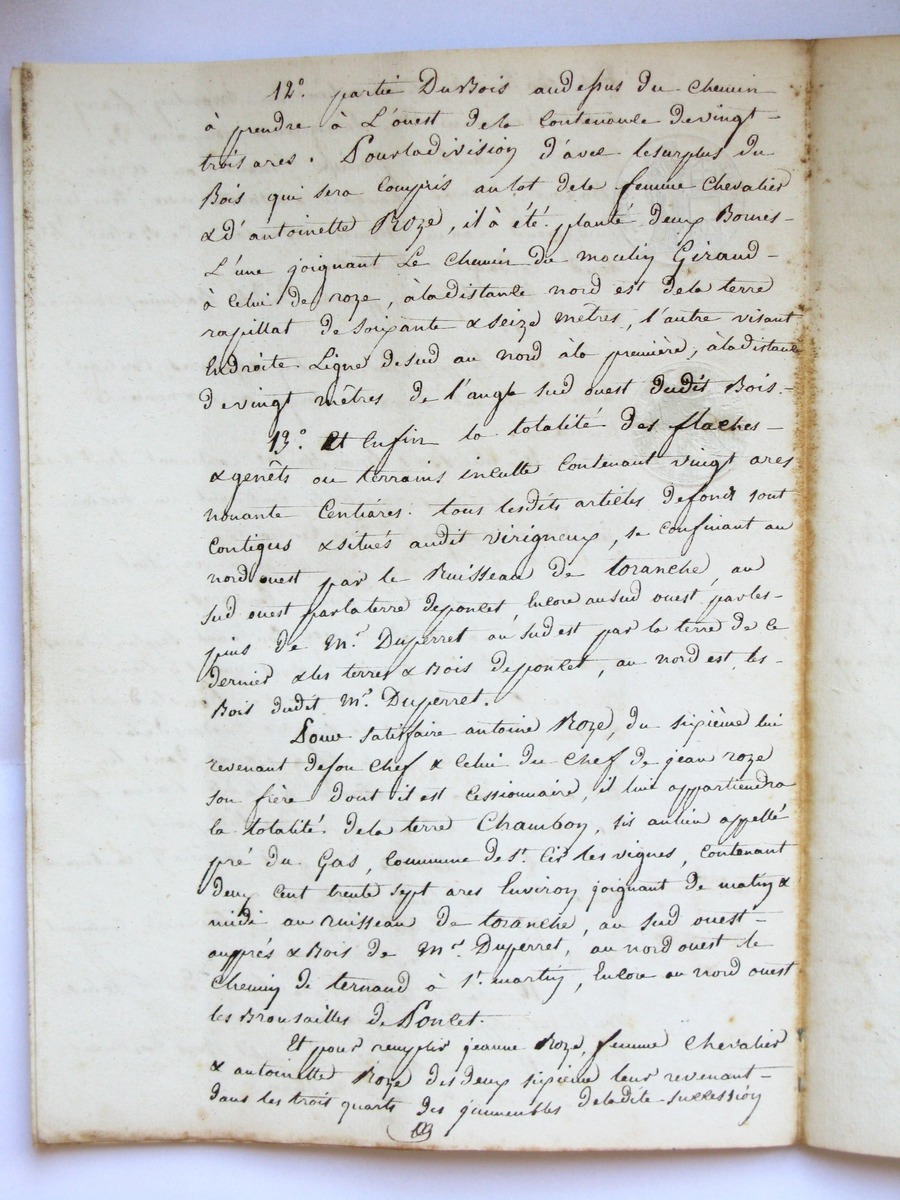 12°. partie Du Bois audessus du Chemin
à prendre à L'ouest dela Contenance devingt
trois ares. Pourladivision d'avec lesurplus du
Bois qui sera Compris aulot dela femme Chevalier
& d'antoinette Roze, il à été planté deux Bornes
L'une joignant Le Chemin du moulin Giraud
à Celui de roze, àladistance nord est dela terre
rapillat de soixante & seize mètres, l'autre visant
Endroite Ligne desud au nord àla première, àladistance
devingt mètres de l'angle sud ouest dudit Bois.
13°. Et Enfin la totalité des flaches
& genêts ou terrains inculte Contenant vingt ares
nonante Centiares. tous lesdits articles defonds sont
Contigus & situés audit virigneux, se Confinant au
nord ouest par le Ruisseau de toranche, au
sud ouest parlaterre deponcet, Encore ausud ouest, par les
pins de Mr. Duperret au sud est par la terre de Ce
dernier & les terres & Bois deponcet, au nord est, les
Bois dudit Mr. Duperret.
Pour satisfaire antoine Roze, du sixième lui
revenant deson Chef & Celui du Chef de jean roze
son frère dont il est Cessionnaire, il lui appartiendra
la totalité dela terre Chambon, sis aulieu appellé
pré du Gas, Commune de St. Cir les vignes, Contenant
deux Cent trente sept ares Environ joignant de matin &
midi au ruisseau de toranche, au sud ouest
auxprés & Bois de Mr. Duperret, au nord ouest le
Chemin de ternand à St. martin, Encore au nord ouest
les Brousailles de Poncet.
Et pour remplir jeanne Roze, femme Chevalier
& antoinette Roze des deux sixième leur revenant
dans les trois quarts des jmmeubles deladite succession